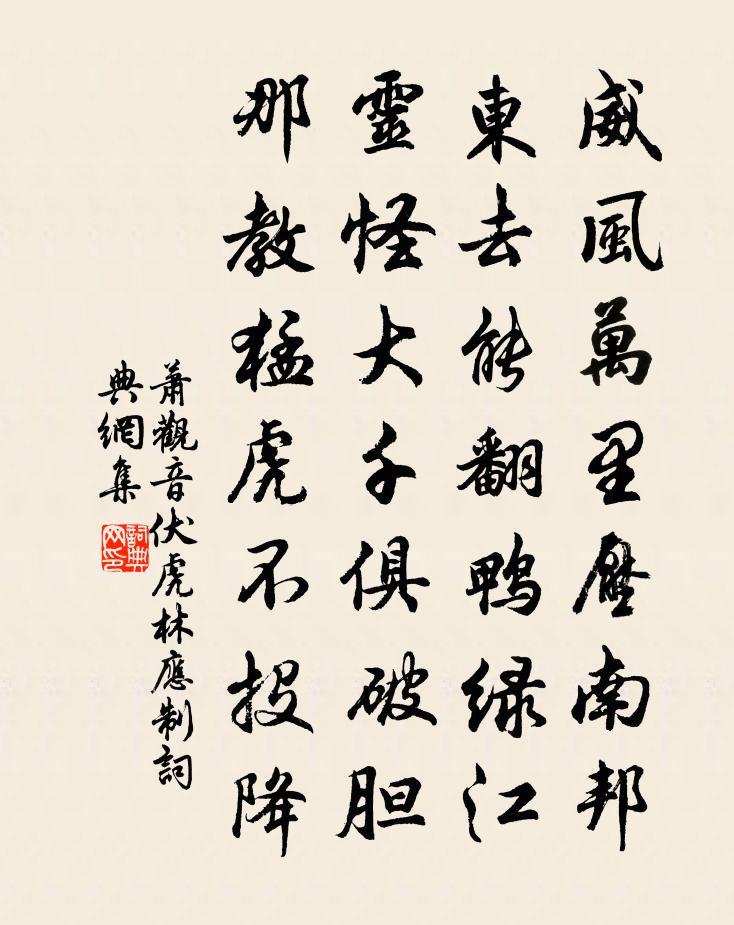 威風萬里壓南邦
東去能翻鴨綠江
靈怪大千俱破胆
那教猛虎不投降
蕭觀音伏虎林應制詞
典網集
詞典网印